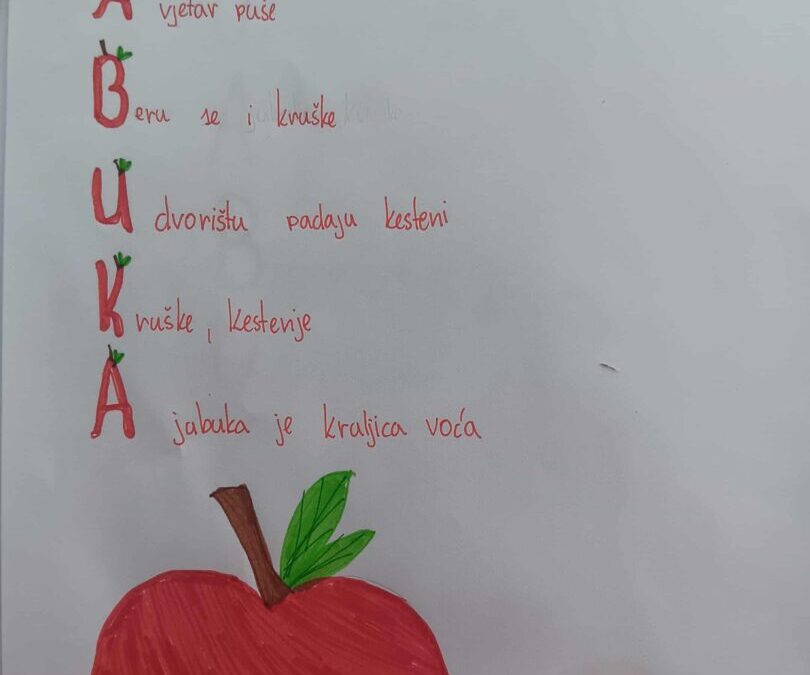 A vjetar puše
Beru se i kruške
U dvorištu padaju kesteni
Kruške, kestenje
A jabuka je kraljica voća